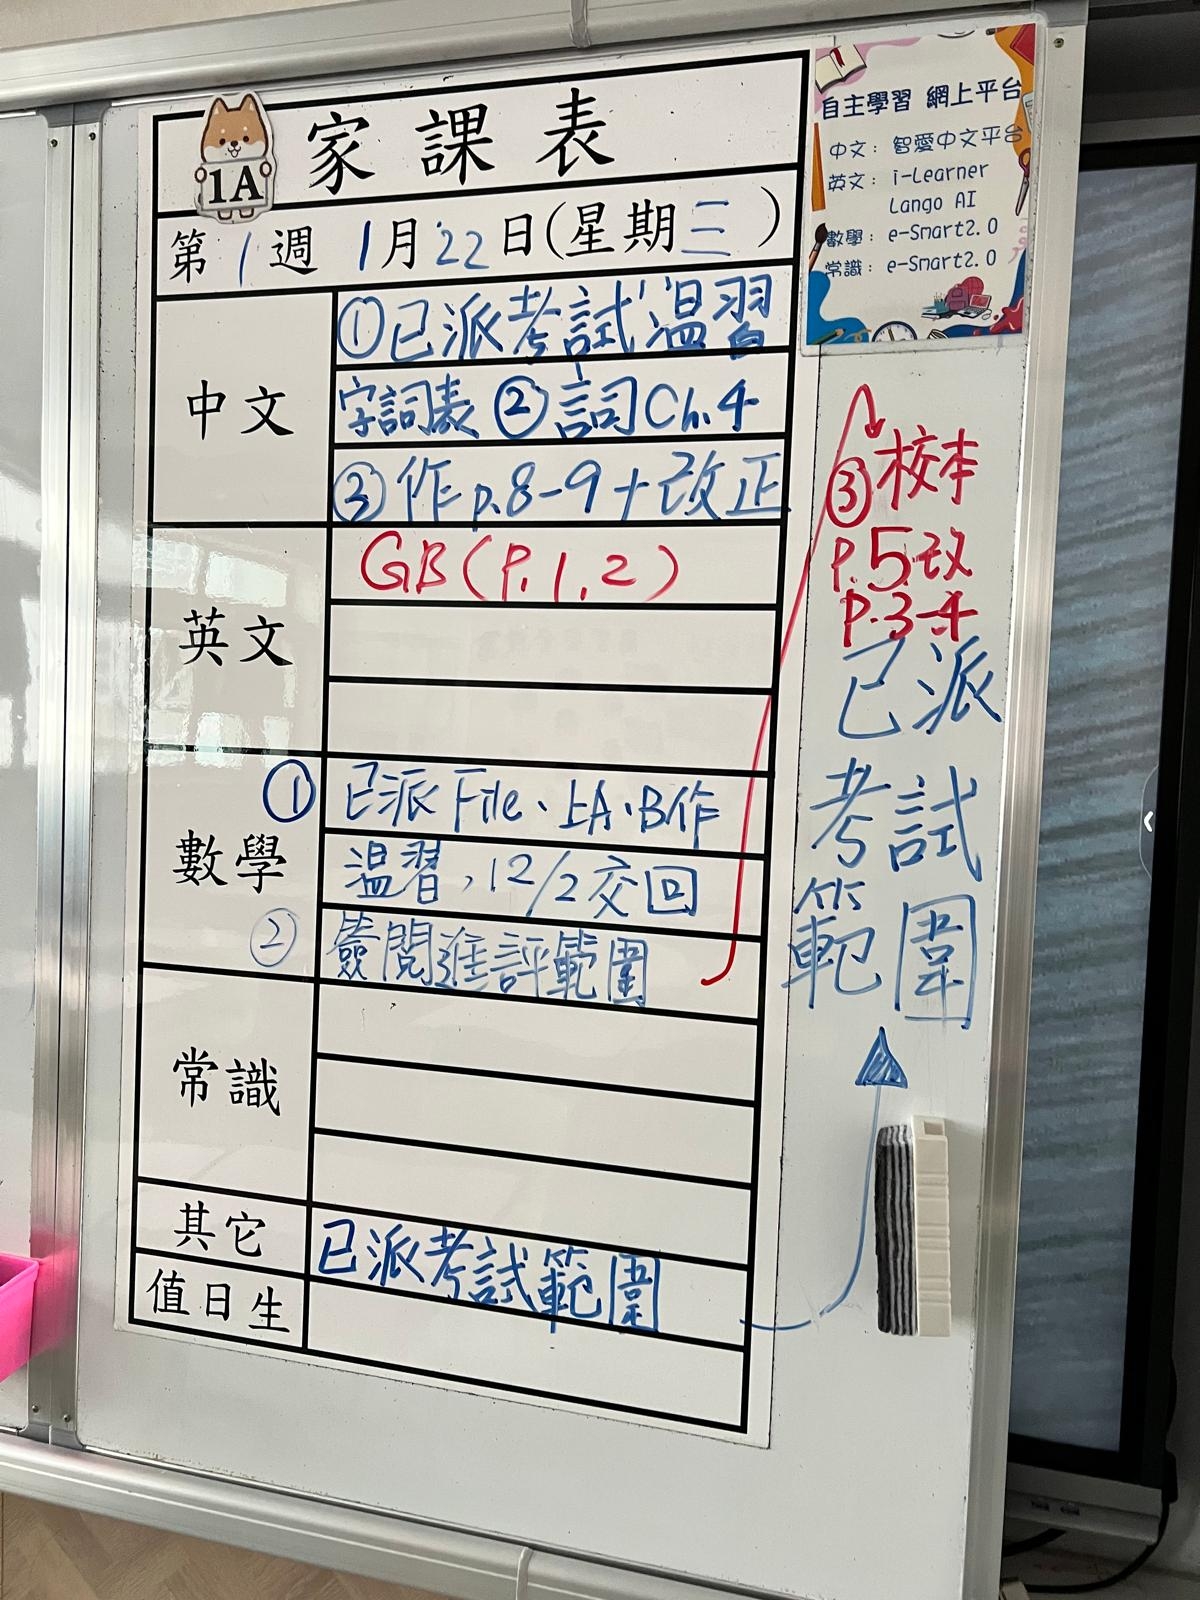 家課表
1A
第1週 1月22日(星期三)
中文
①已派考試溫習
字詞表 ②詞Ch.4
③作p.8-9+改正
英文
GB(P.1,2)
數學
① 已派File、上A、B作
溫習,12/2交回
② 簽閱進評範圍
③校本
P.5改
P.3-4
常識
其它
已派考試範圍
值日生
已派
考試
範圍
自主學習 網上平台
中文: 智愛中文平台
英文: i-Learner
Lango AI
數學: e-Smart2.0
常識: e-Smart2.0